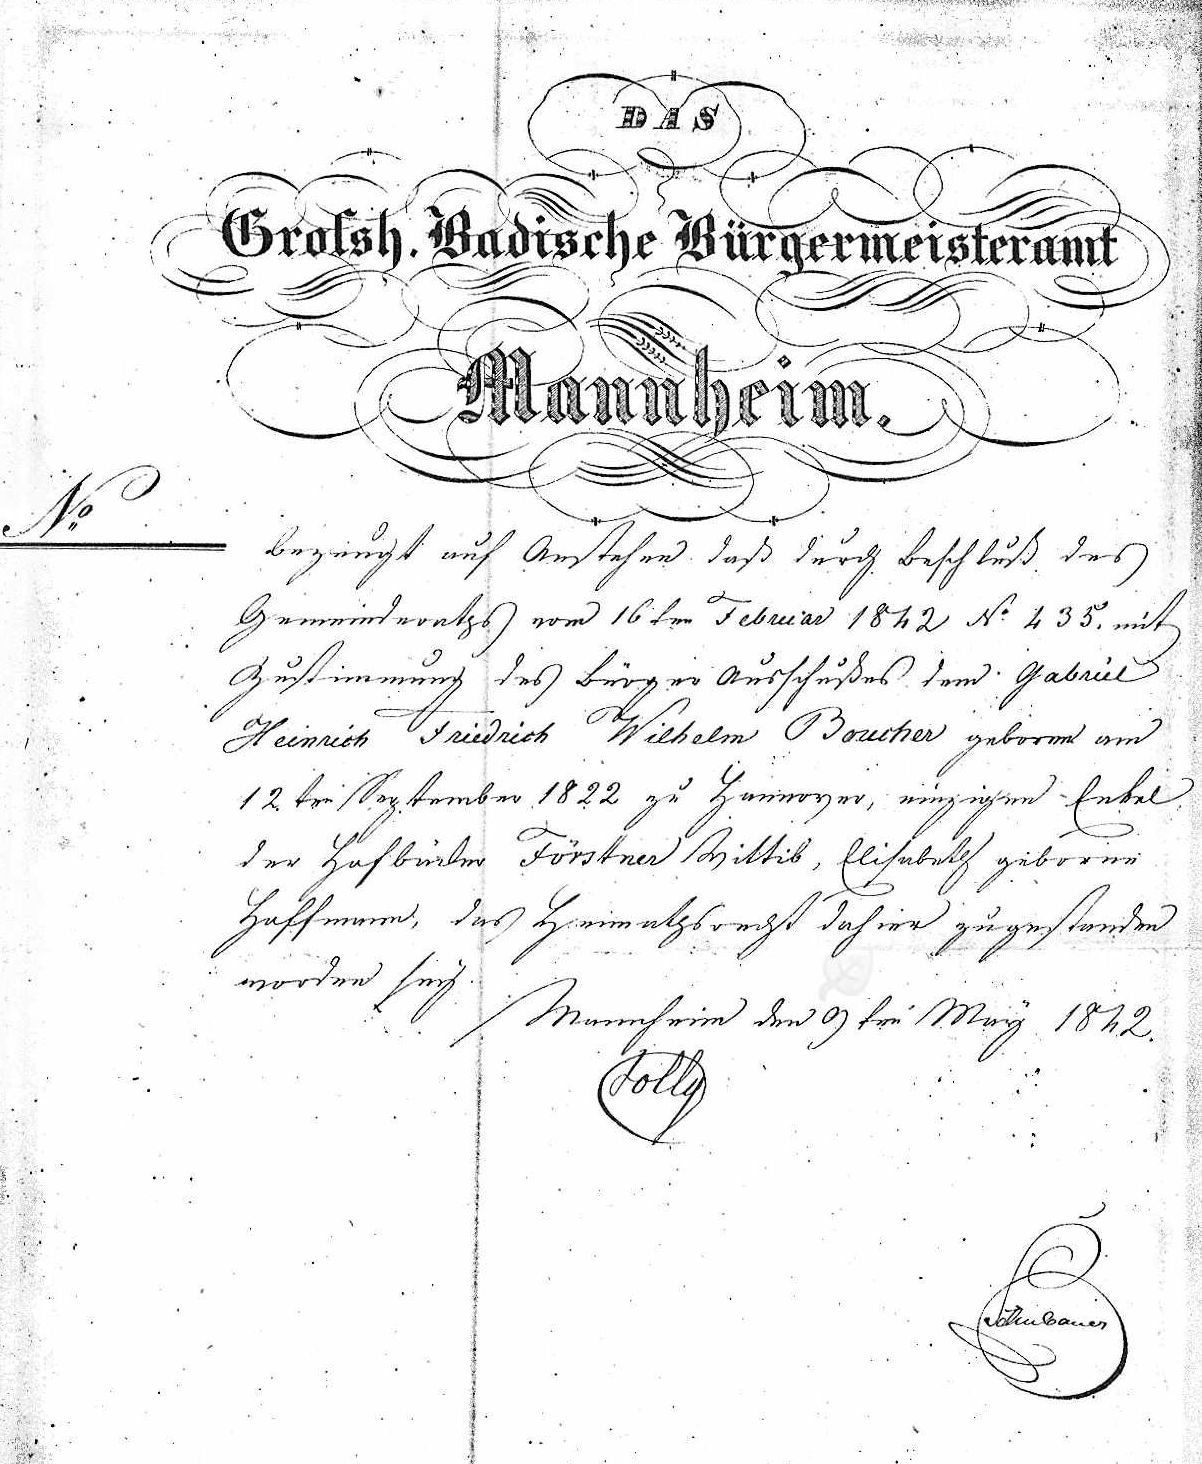 DAS
Grolsh. Badische Bürgermeisteramt
Mannheim.
No
bezeugt auf Anstehen daß durch Beschluß des
Gemeinderaths vom 16ten Februar 1842 No 435. mit
Zustimmung des Bürger Ausschußes dem Gabriel
Heinrich Friedrich Wilhelm Boucher geboren am
12ten September 1822 zu Hannover, einzigen Enkel
der Hofbäcker Förstner Wittib, Elisabeth geborne
Hoffmann, das Heimathsrecht dahier zugestanden
worden sey.
Mannheim den 9ten May 1842.
Jolly